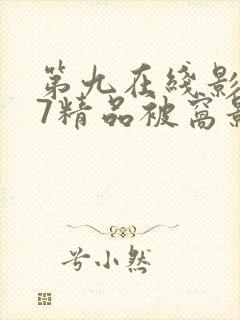 第九在线影
7精品被窝影
兮小然